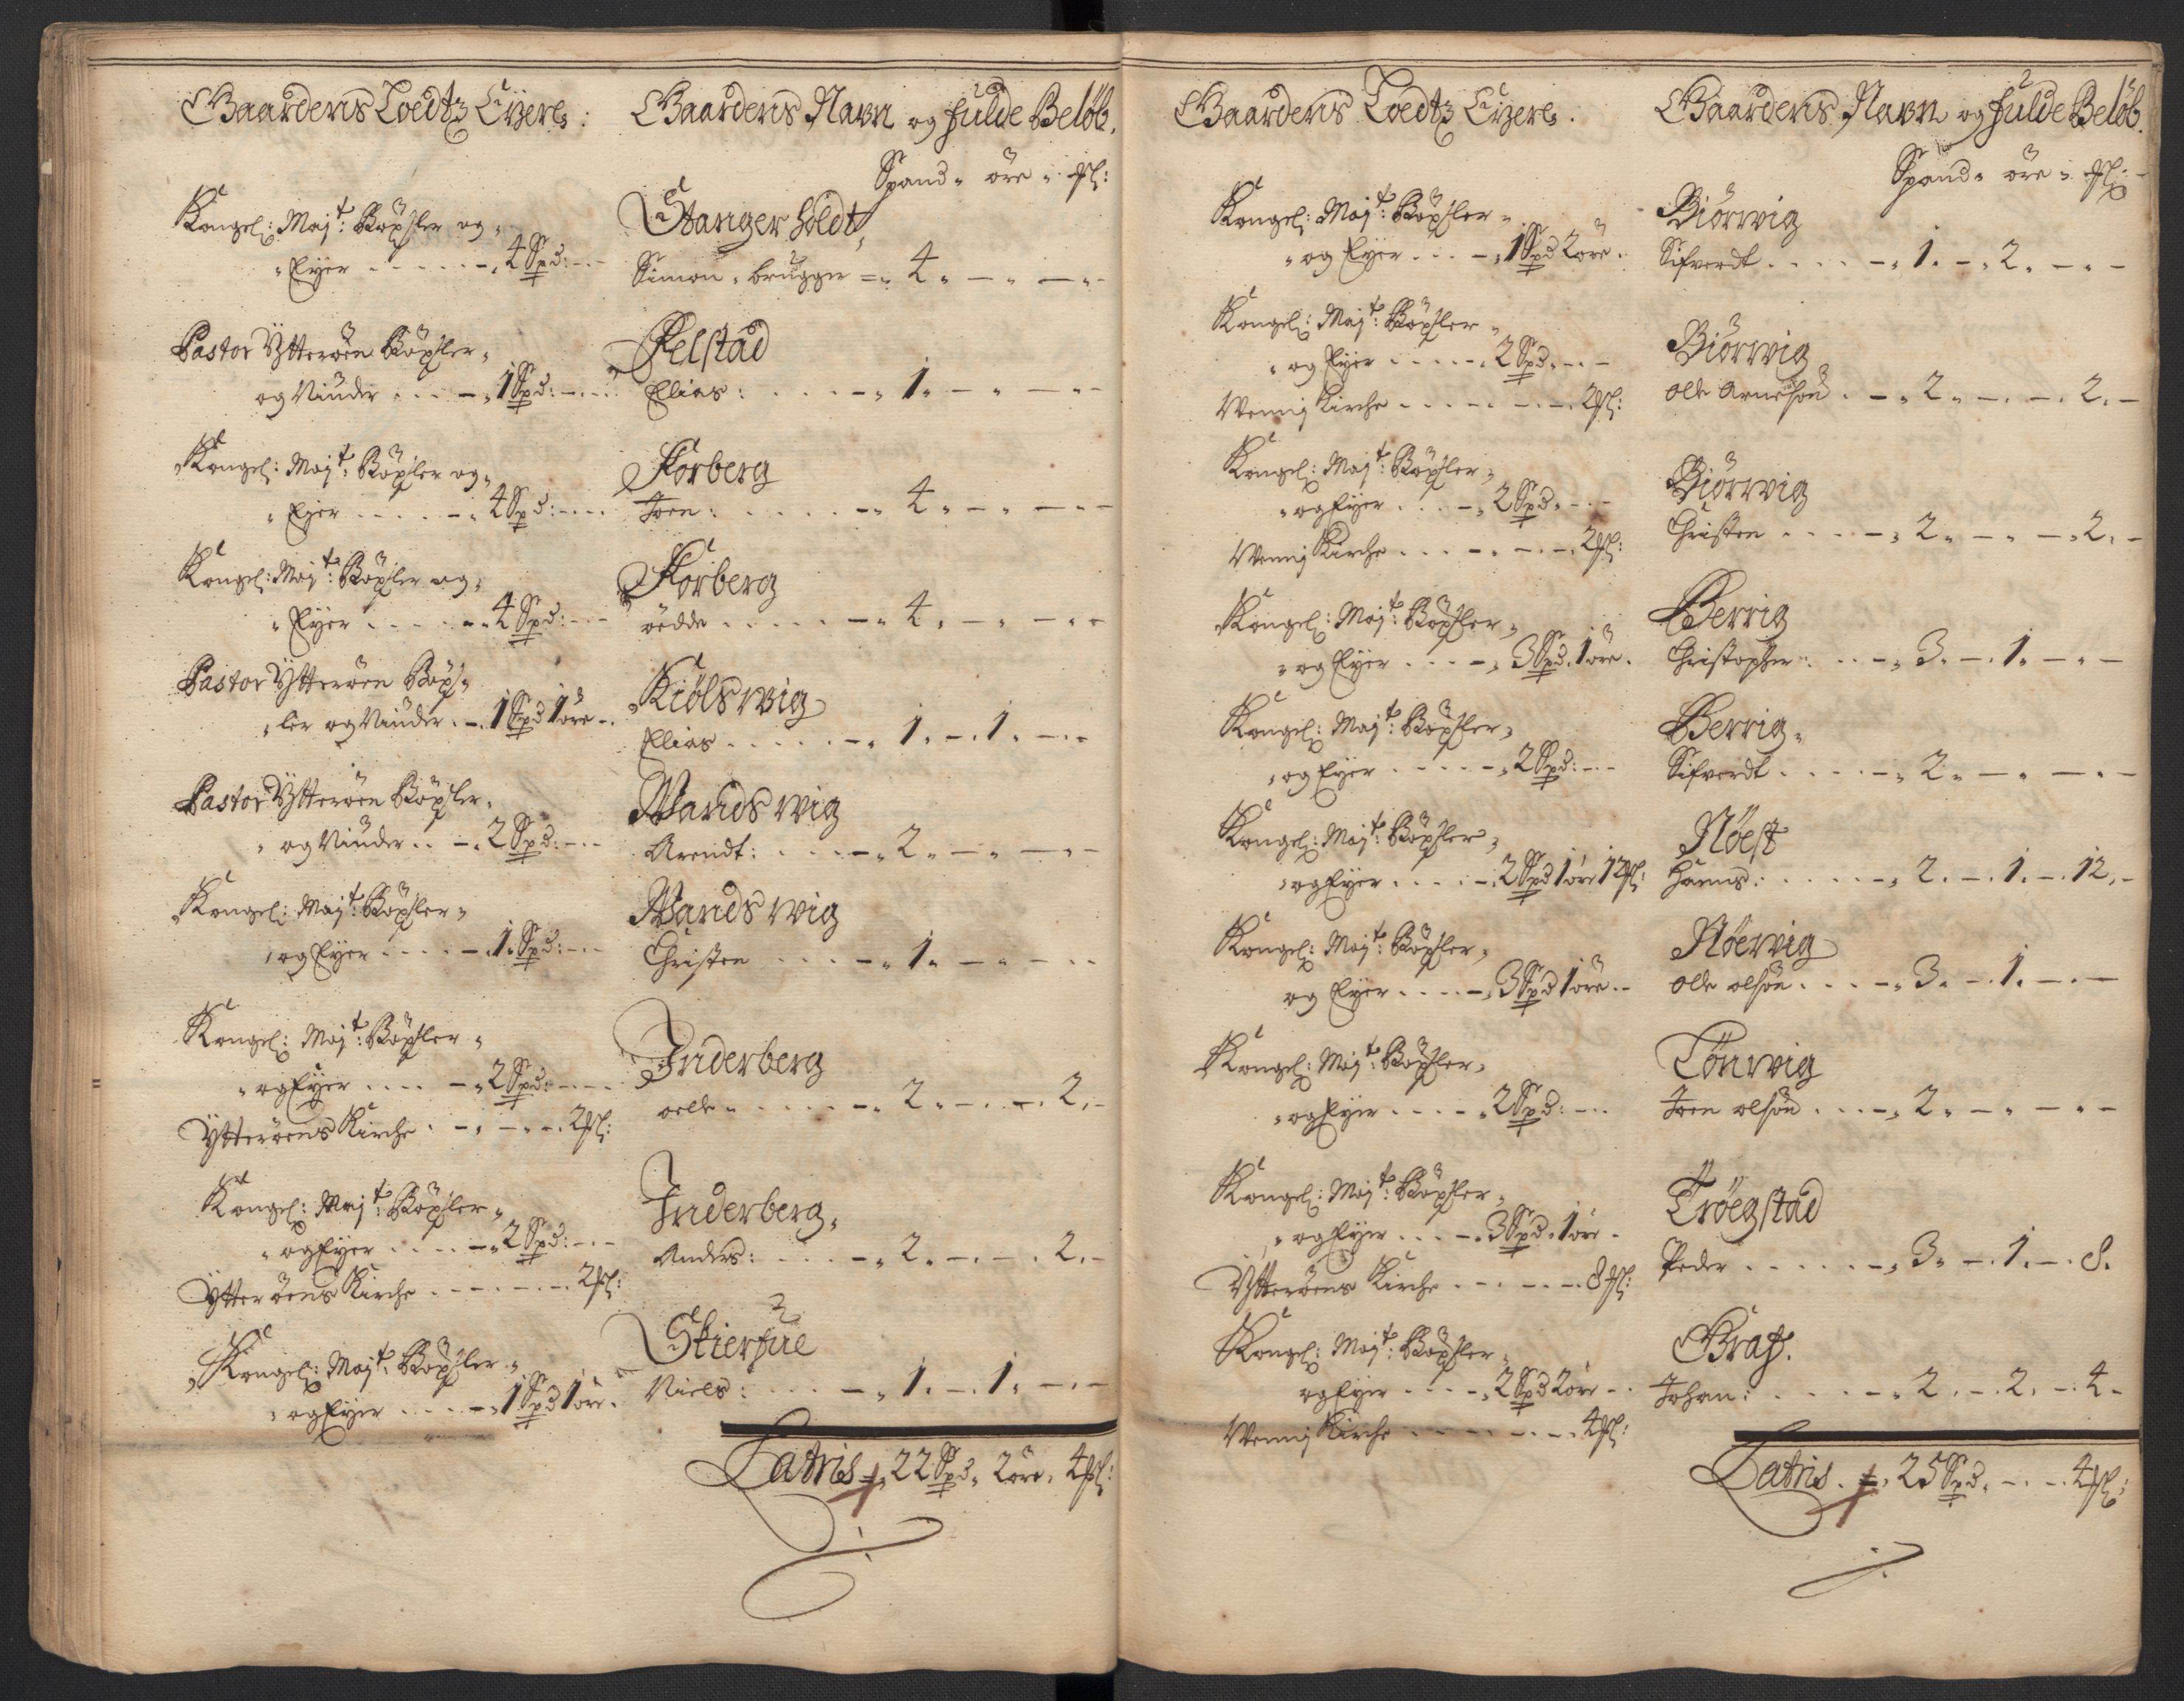 Gaardens Loedtz Eyere:
Gaardens Navn og fulde Beløb.
Spand, öre, ßl:
Kongel: Maÿt: Böxler og
Eyer . . . . . 4 Spd: - . -
Stangerholdt
Simon brugger = 4 . - . - . -
Pastor Ytteröen Böxler
og Niuder . . . - 1 Spd: - . -
Kelstad
Elias: . . . - 1 . - . - . -
Kongel: Maÿt: Böxler og
Eyer . . . . . 4 Spd: - . -
Korberg
Joen: . . . . 4 . - . - . -
Kongel: Maÿt: Böxler og
Eyer . . . . . 4 Spd: - . -
Korberg
öedde . . . . 4 . - . - . -
Pastor Ytteröen Böx-
ler og Niuder . - . 1 Spd 1 öre -
Kiölsvvig
Elias . . . . - 1 . - . 1 . - . -
Pastor Ytteröen Böxler
og Niuder . . - . 2 Spd: - . -
Wandsvvig
Arendt: . . . - 2 . - . - . -
Kongel: Maÿt: Böxler
og Eyer . . . . - . 1 Spd: - . -
Wandsvvig
Christen . . . - 1 . - . - . -
Kongel: Maÿt: Böxler
og Eyer . . . . - 2 Spd: - . -
Ytteröens Kirche . - . - . 2 ßl:
Inderberg
oelle . . . . . 2 . - . - . 2 . -
Kongel: Maÿt: Böxler
og Eyer . . . . - 2 Spd: - . -
Ytteröens Kirche . - . - . - . 2 ßl:
Inderberg
Anders: . . . - 2 . - . - . 2 . -
Kongel: Maÿt: Böxler
og Eyer . . . . - 1 Spd 1 öre .
Skierfue
Niels: . . . - 1 . - . 1 . - . -
Latris 22 Spd, 2 öre, 4 ßl:
Gaardens Loedtz Eyere.
Gaardens Navn og fulde Beløb.
Spand, öre, ßl:
Kongel: Maÿt: Böxler
og Eyer . . . - 1 Spd 2 öre .
Biörvvig
Sifverdt . . . . - 1 . - . 2 . - . -
Kongel: Maÿt: Böxler
og Eyer . . . . - 2 Spd . - . -
Wennÿ Kirche . . . - . - . - . 2 ßl:
Biörvvig
olle Arneßön . - 2 . - . - . 2 . -
Kongel: Maÿt: Böxler
og Eyer . . . - 2 Spd . - . -
Wennÿ Kirche . . . - . - . - . 2 ßl:
Biörvvig
Christen . . . - 2 . - . - . 2 . -
Kongel: Maÿt: Böxler
og Eyer . . . - 3 Spd. 1 öre .
Berrig
Christopher . . . - 3 . - . 1 . - . -
Kongel: Maÿt: Böxler
og Eyer . . . . - 2 Spd: - . -
Berrig
Sifverdt . . . . - 2 . - . - . -
Kongel: Maÿt: Böxler
og Eyer . . . . - 2 Spd 1 öre 12 ßl:
Nöest
Haens: . . . . - 2 . - . 1 . - . 12 . -
Kongel: Maÿt: Böxler
og Eyer . . . . - 3 Spd 1 öre . -
Nöervig
olle olßön . . . - 3 . - . 1 . - . -
Kongel: Maÿt: Böxler
og Eyer . . . . - 2 Spd: - . -
Tönvvig
Joen olßön . . . - 2 . - . - . -
Kongel: Maÿt: Böxler
og Eyer . . . - 3 Spd . 1 öre .
Ytteröens Kirche . - . - . - . 8 ßl:
Tröegstad
Peder . . . . . - 3 . - . 1 . - . 8 .
Kongel: Maÿt: Böxler
og Eyer . . . - 2 Spd 2 öre - .
Wennÿ Kirche . . - . - . - . 4 ßl:
Graf.
Johan: . . . . - 2 . - . 2 . - . 4 -
Latris . 25 Spd. - . - . 4 ßl: